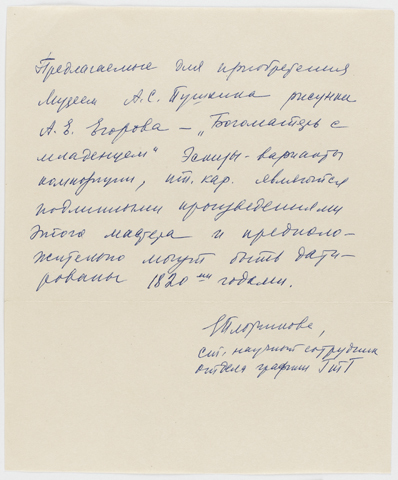 Предлагаемые для приобретения
Музеем А.С. Пушкина рисунки
А.Е. Егорова – „Богоматерь с
младенцем“ Эскизы-варианты
композиции, ит. кар. являются
подлинными произведениями
этого мастера и предполо-
жительно могут быть дати-
рованы 1820ми годами.
ст. научный сотрудник
отдела графики ГТГ